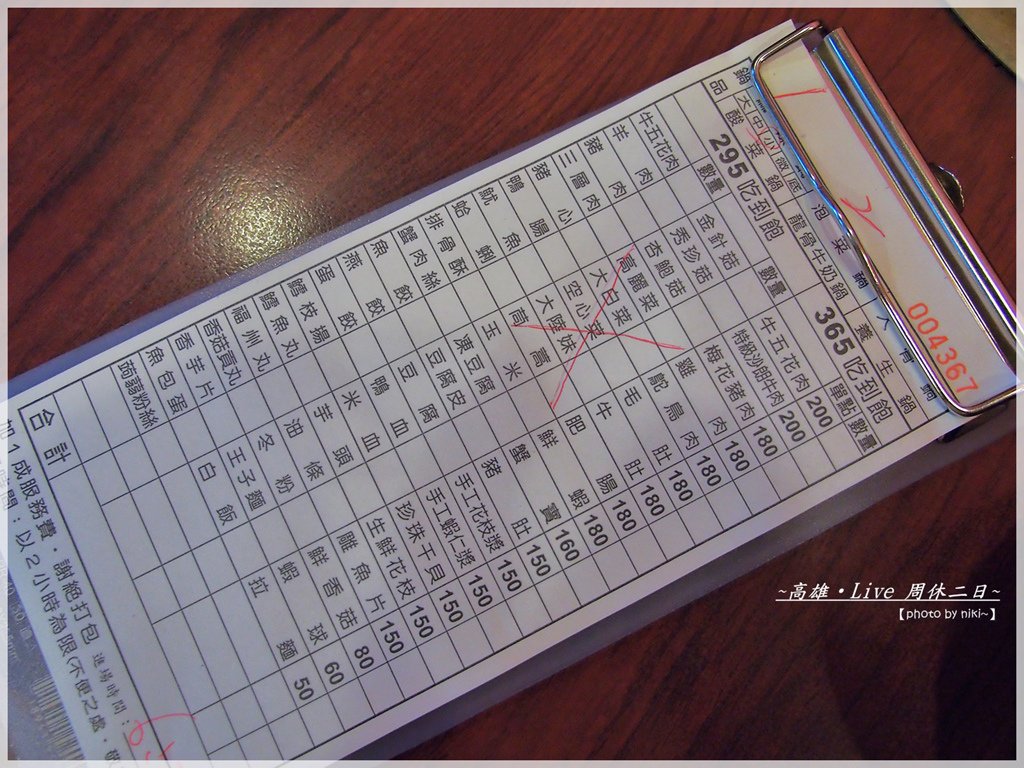 004367
鍋品
大中小微底
酸菜鍋
泡菜鍋
人
龍骨牛奶鍋
養生鍋
295吃到飽
365吃到飽
數量
數量
單點
數量
牛五花肉
金針菇
牛五花肉
200
羊肉
秀珍菇
特級沙朗牛肉
200
豬肉
杏鮑菇
梅花豬肉
180
三層肉
高麗菜
雞肉
180
豬心
大白菜
鴕鳥肉
180
鴨腸
空心菜
毛肚
180
魷魚
大陸妹
牛肚
180
蛤蜊
茼蒿
肥腸
180
排骨酥
玉米
鮮蝦
180
蟹肉絲
凍豆腐
蟹寶
160
魚餃
豆腐皮
豬肚
150
燕餃
豆腐
手工花枝漿
150
蛋餃
鴨血
手工蝦仁漿
150
鱈枝揚
米血
珍珠干貝
150
鱈魚丸
芋頭
生鮮花枝
150
福州丸
油條
雕魚片
150
香菇貢丸
冬粉
鮮香菇
80
香芋片
王子麵
蝦球
60
魚包蛋
白飯
拉麵
50
蒟蒻粉絲
合計
加1成服務費，謝絕打包
進場時間：
時間：以2小時為限(不便之處，敬
~高雄・Live 周休二日~
【photo by niki~】